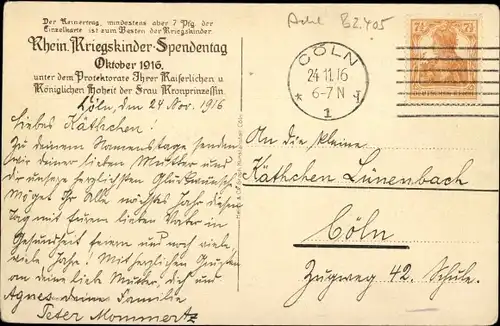 Der Reinertrag, mindestens aber 7 Pfg. der
Einzelkarte ist zum Besten der Kriegskinder.
Rhein. Kriegskinder-Spendentag
Oktober 1916.
unter dem Protektorate Ihrer Kaiserlichen u.
Königlichen Hoheit der Frau Kronprinzessin.
Adel B2.405
CÖLN
24.11.16
6-7 N
* 1
7½ 7½
DEUTSCHES REICH
Cöln, den 24 Nov. 1916
Liebes Käthchen!
Zu deinem Namenstage senden
wir deiner lieben Mutter und
dir unsere herzlichsten Glückwünsche
Möget Ihr alle nächstes Jahr diesen
Tag mit Eurem lieben Vater in
Gesundheit feiern und noch viele,
viele Jahre! Mit herzlichen Grüßen
an deine liebe Mutter, dich und
Agnes deine Familie
Peter Mommertz
An die kleine
Käthchen Lünenbach
Cöln
Zugweg 42. Schule.